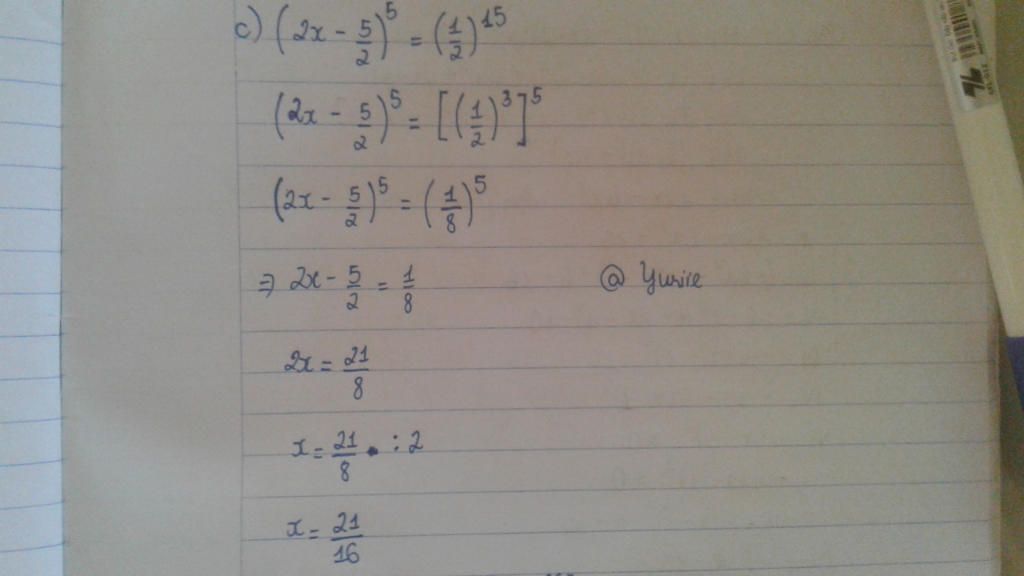 c) (2x - 5/2)^5 = (1/2)^15
(2x - 5/2)^5 = [(1/2)^3]^5
(2x - 5/2)^5 = (1/8)^5
⇒ 2x - 5/2 = 1/8 @ Yurire
2x = 21/8
x = 21/8 : 2
x = 21/16